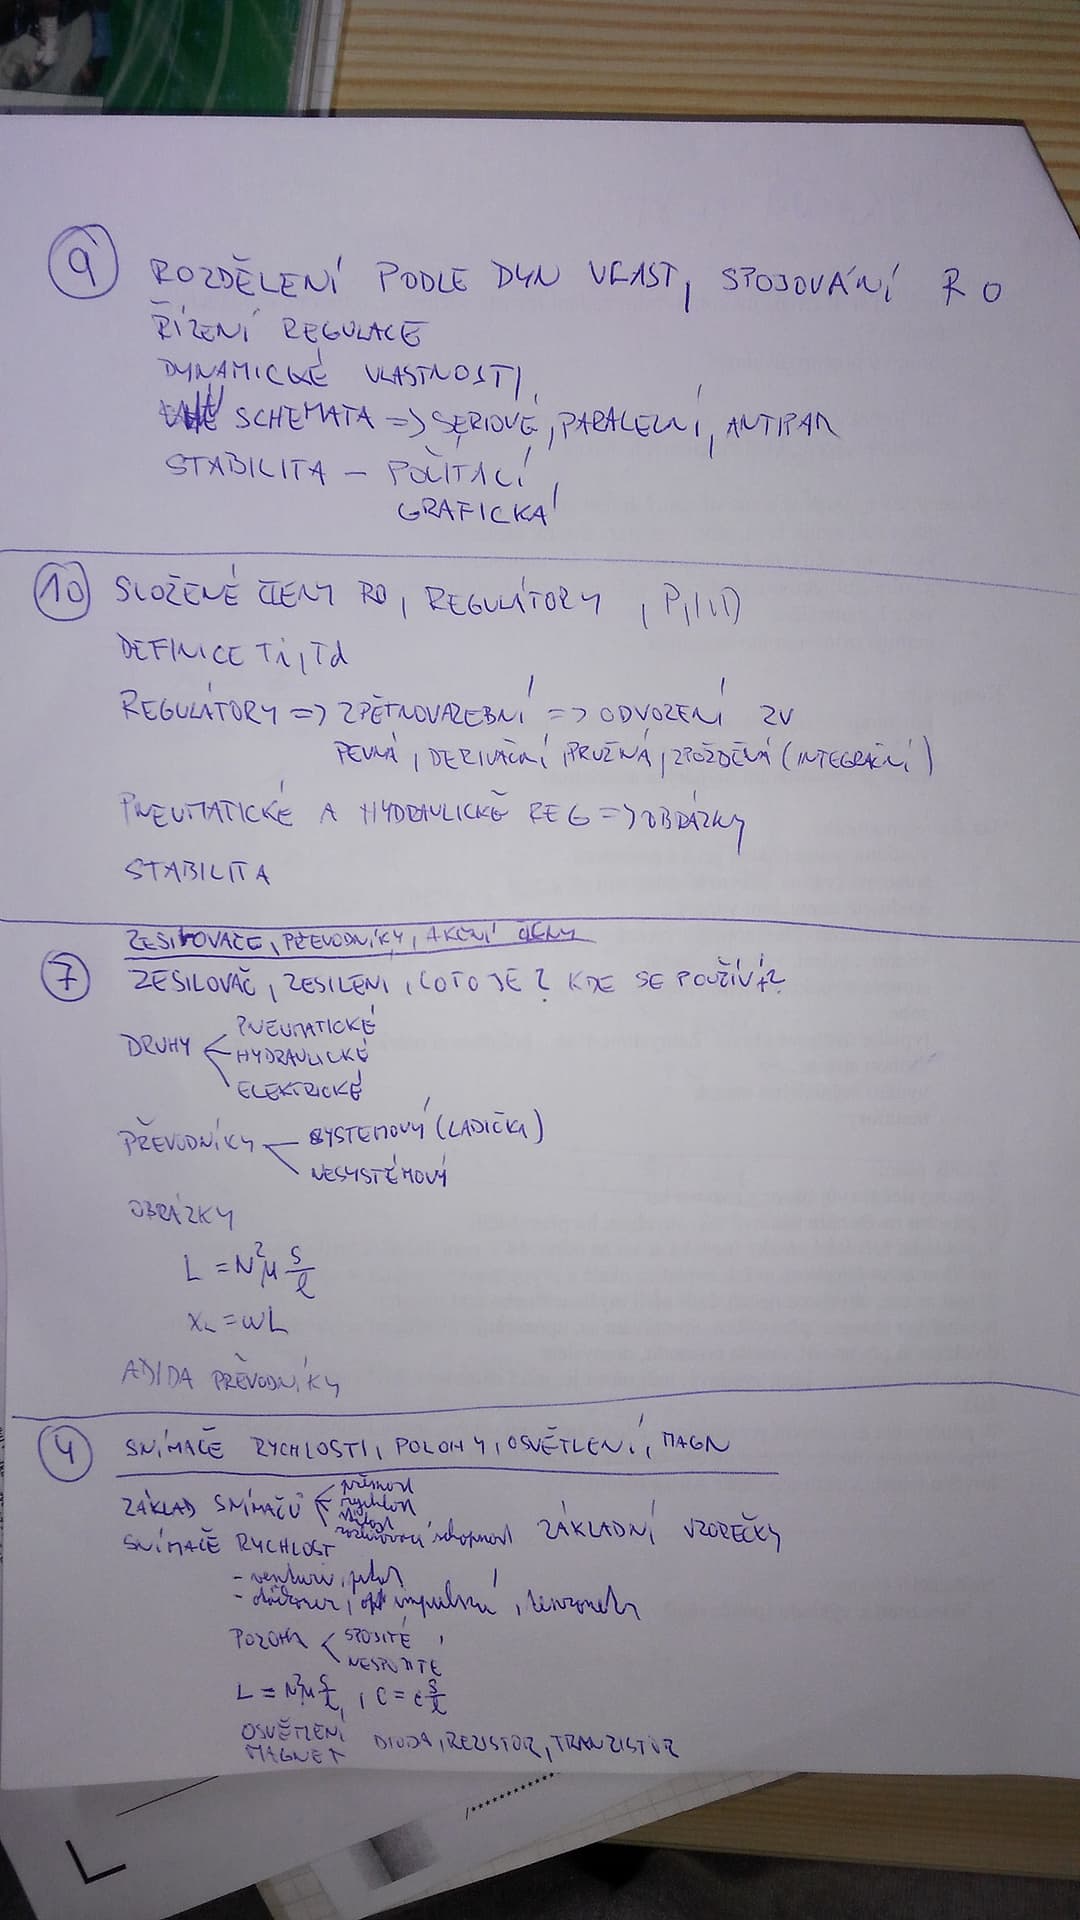 9 ROZDĚLENÍ PODLE DYN VLAST, SPOJOVÁNÍ RO
ŘÍZENÍ REGULACE
DYNAMICKÉ VLASTNOSTI
SCHEMATA => SÉRIOVÉ, PARALELNÍ, ANTIPAR
STABILITA – POČÍTACÍ
GRAFICKÁ
10 SLOŽENÉ ČLENY RO, REGULÁTORY, P, I, D
DEFINICE Ti, Td
REGULÁTORY => ZPĚTNOVAZEBNÍ => ODVOZENÍ ZV
PEVNÁ, DERIVAČNÍ, PRUŽNÁ, ZPOŽDĚNÁ (INTEGRAČNÍ)
PNEUMATICKÉ A HYDRAULICKÉ REG => OBRÁZKY
STABILITA
ZESILOVAČE, PŘEVODNÍKY, AKČNÍ ČLENY
7 ZESILOVAČ, ZESILENI, COTO JE? KDE SE POUŽÍVÁ?
DRUHY
PNEUMATICKÉ
HYDRAULICKÉ
ELEKTRICKÉ
PŘEVODNÍKY
SYSTEMOVÝ (LADIČKA)
NESYSTÉMOVÝ
OBRÁZKY
L = N²μ S/l
XL = ωL
AD/DA PŘEVODNÍKY
4 SNÍMAČE RYCHLOSTI, POLOHY, OSVĚTLENÍ, MAGN
ZÁKLAD SNÍMAČŮ
přesnost
rychlost
stálost
rozlišovací schopnost ZÁKLADNÍ VZOREČKY
SNÍMAČE RYCHLOST
- venturi, pitot
opt impulsní,
POLOHA
SPOJITÉ
NESPOJITÉ
L = N²μ S/l, C = ε S/l
OSVĚTLENÍ DIODA, REZISTOR, TRANZISTOR
MAGNET